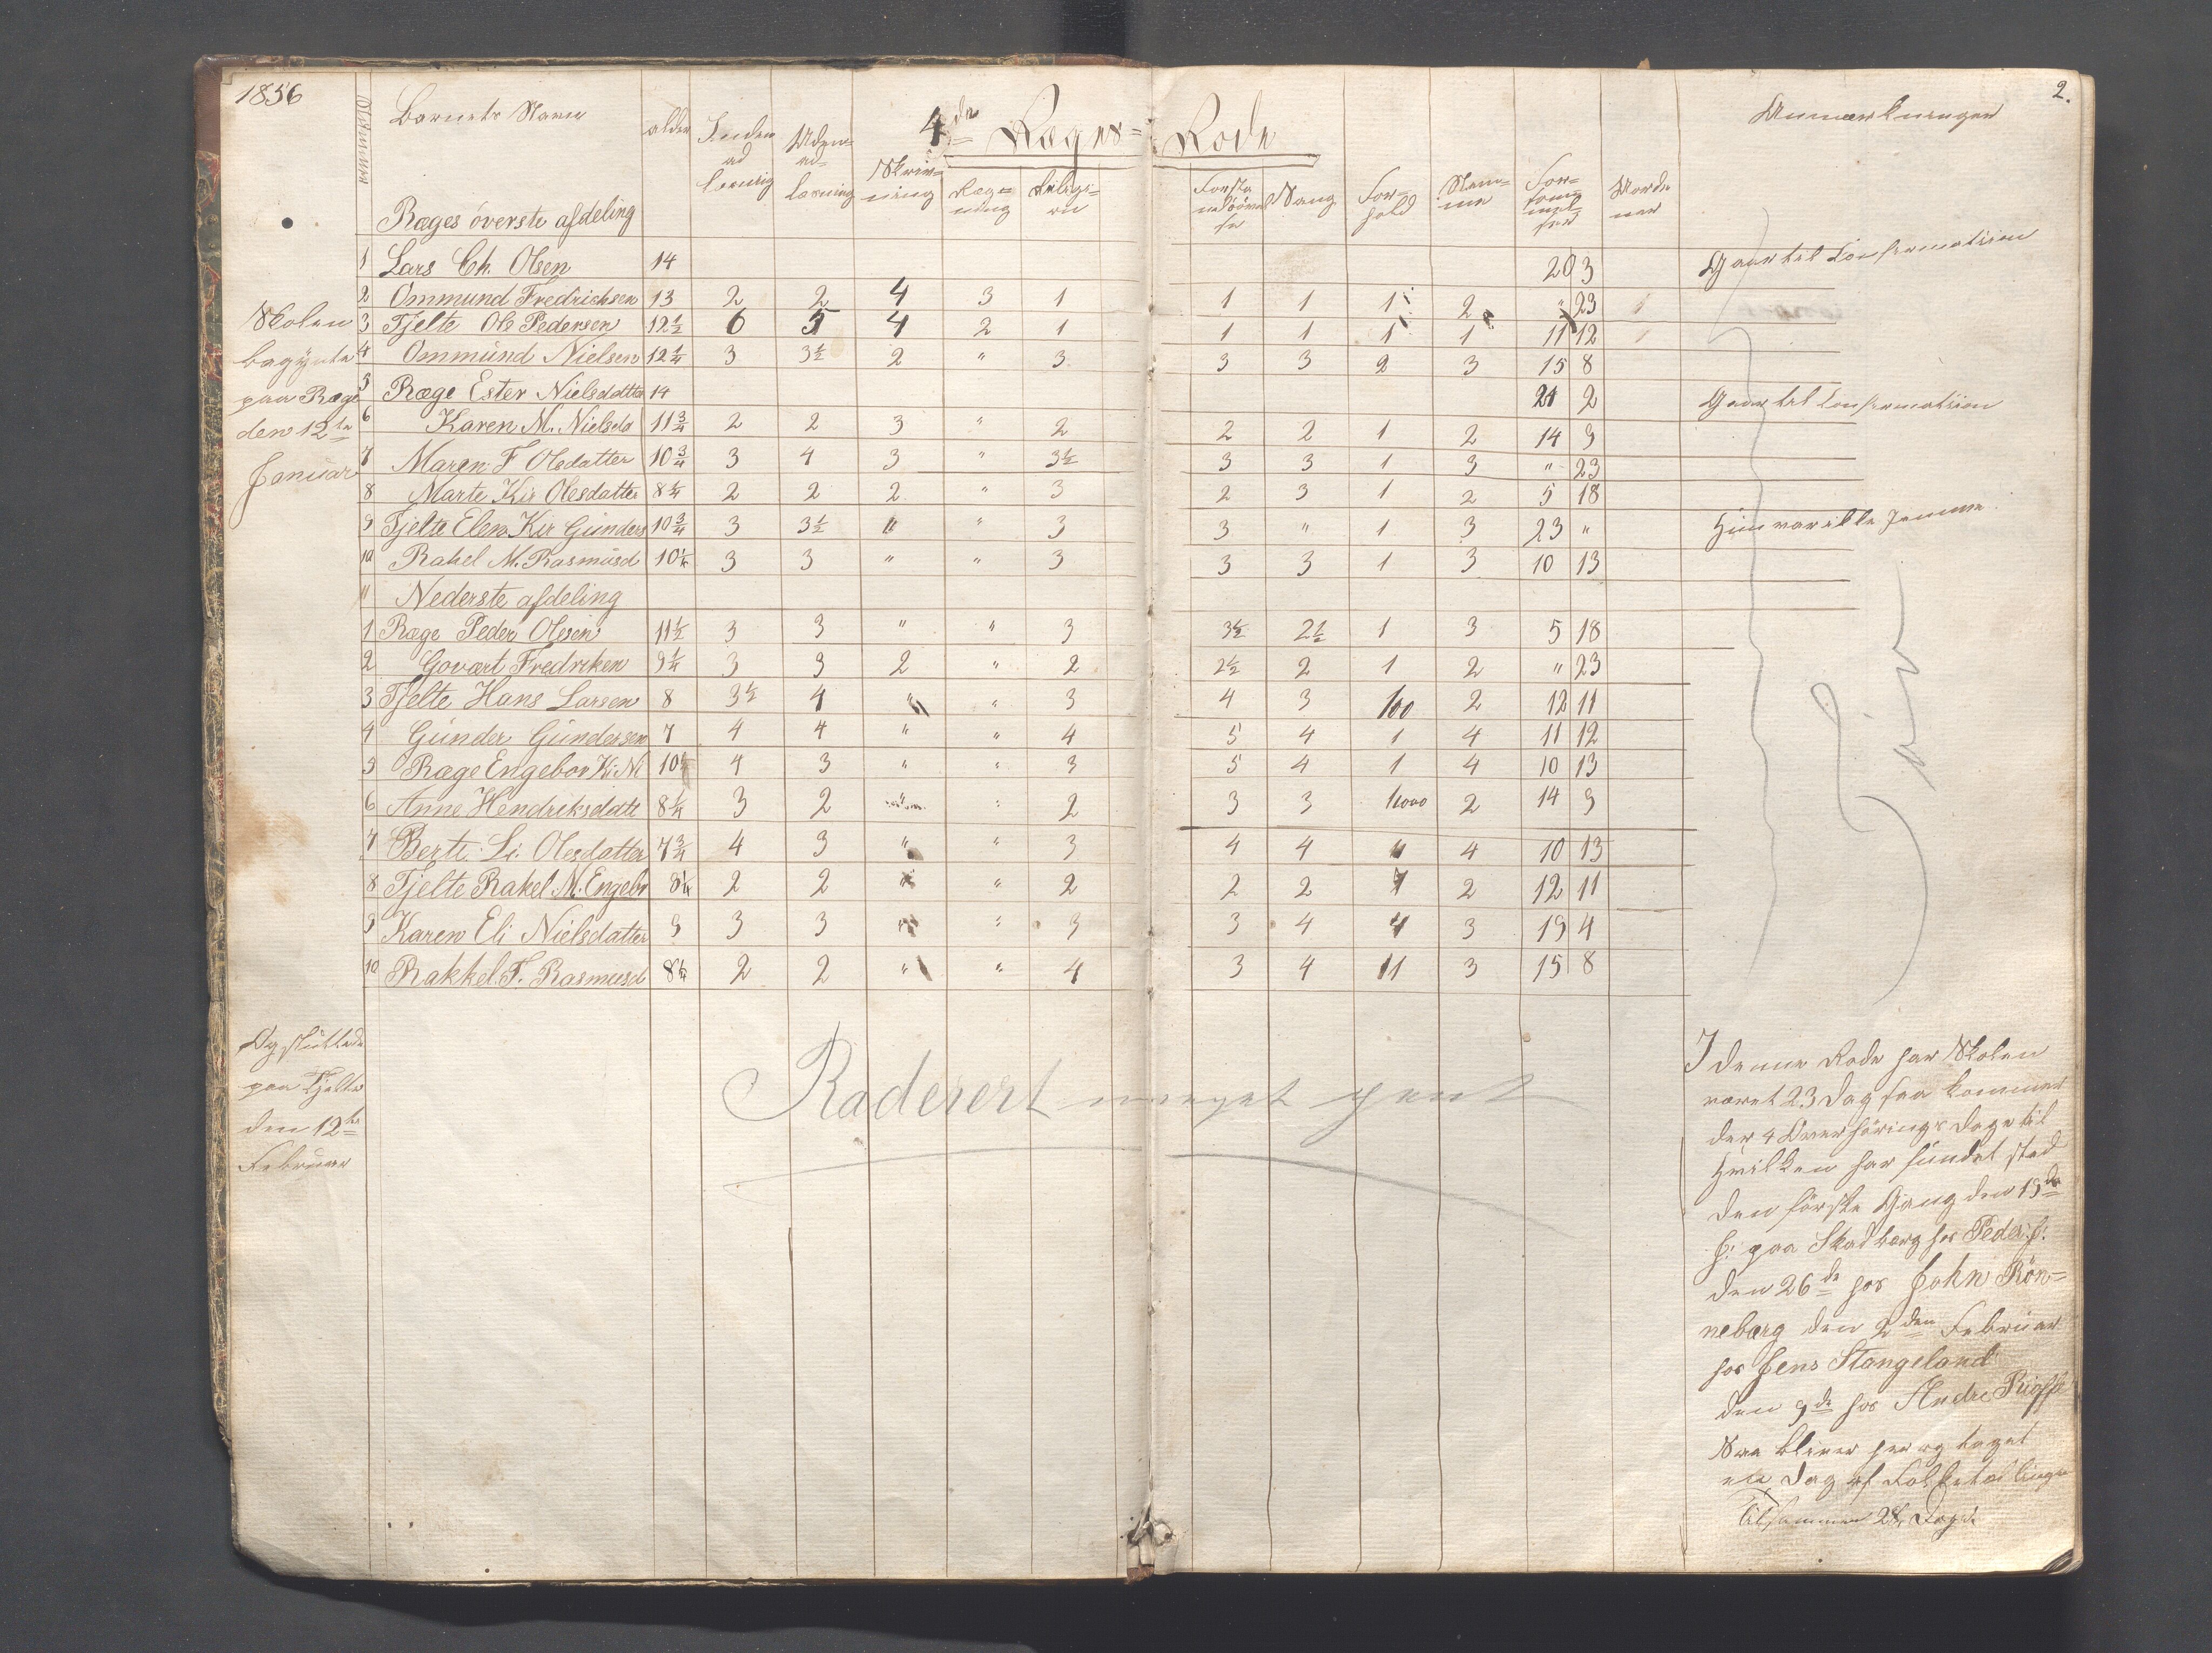 1856
2.
4de Ræges= Rode
Barnets Navn alder Inden ad læsning Uden= ad= læsning Skriv= ning Reg= ning Religi= on
Sang For= hold Nem= me
Anmærkninger
Ræges överste afdeling
1 Lars Ch. Olsen 14 20 3 Gaar til Confirmation
2 Ommund Fredrichsen 13 2 2 4 3 1 1 1 1 2 " 23
3 Tjelte Ole Pedersen 12½ 6 5 4 2 1 1 1 1 1 11 12
4 Ommund Nielsen 12¼ 3 3½ 2 " 3 3 3 2 3 15 8
5 Ræge Ester Nielsdatter 14 21 2 Gaar til Confirmation
6 Karen M. Nielsda 11¾ 2 2 3 " 2 2 2 1 2 14 9
7 Maren F Olsdatter 10¾ 3 4 3 " 3½ 3 3 1 3 " 23
8 Marte Kir Olesdatter 8¼ 2 2 2 " 3 2 3 1 2 5 18
9 Tjelte Elen Kir Gunders 10¾ 3 3½ " " 3 3 " 1 3 23 " Hun var ikke hjemme
10 Rakel M. Rasmusd 10¼ 3 3 " " 3 3 3 1 3 10 13
" Nederste afdeling
1 Ræge Peder Olsen 11½ 3 3 " " 3 3½ 2½ 1 3 5 18
2 Govært Fredriken 9¼ 3 3 2 " 2 2½ 2 1 2 " 23
3 Tjelte Hans Larsen 8 3½ 4 " " 3 4 3 100 2 12 11
4 Gunder Gundersen 7 4 4 " " 4 5 4 1 4 11 12
5 Ræge Engebor K. N. 10½ 4 3 " " 3 5 4 1 4 10 13
6 Anne Hendriksdatt 8¼ 3 2 " " 2 3 3 1000 2 14 9
7 Berte Li. Olesdatter 7¾ 4 3 " " 3 4 4 4 10 13
8 Tjelte Rakel M. Engebr 8¼ 2 2 " " 2 2 2 2 12 11
9 Karen Eli Nielsdatter 9 3 3 " " 3 3 4 4 3 19 4
10 Rakkel T. Rasmusd 8¼ 2 2 " " 4 3 4 11 3 15 8
Skolen
begyndte
paa Ræge
den 12te
Januar
Og sluttede
paa Tjelte
den 12te
Februar
Raderert meget pent
I denne Rode har Skolen
været 23 Dag saa kommer
der 4 Overhörings Dage til
Hvilken har fundet sted
den förste Gang den 19de
J. paa Skadberg hos Peder J.
den 26de hos John Rön=
neberg den 2den Februar
hos Jens Stangeland
den 9de hos Andre
Saa bliver her og taget
en Dag af Folketællingen
Tilsammen 28 Dage